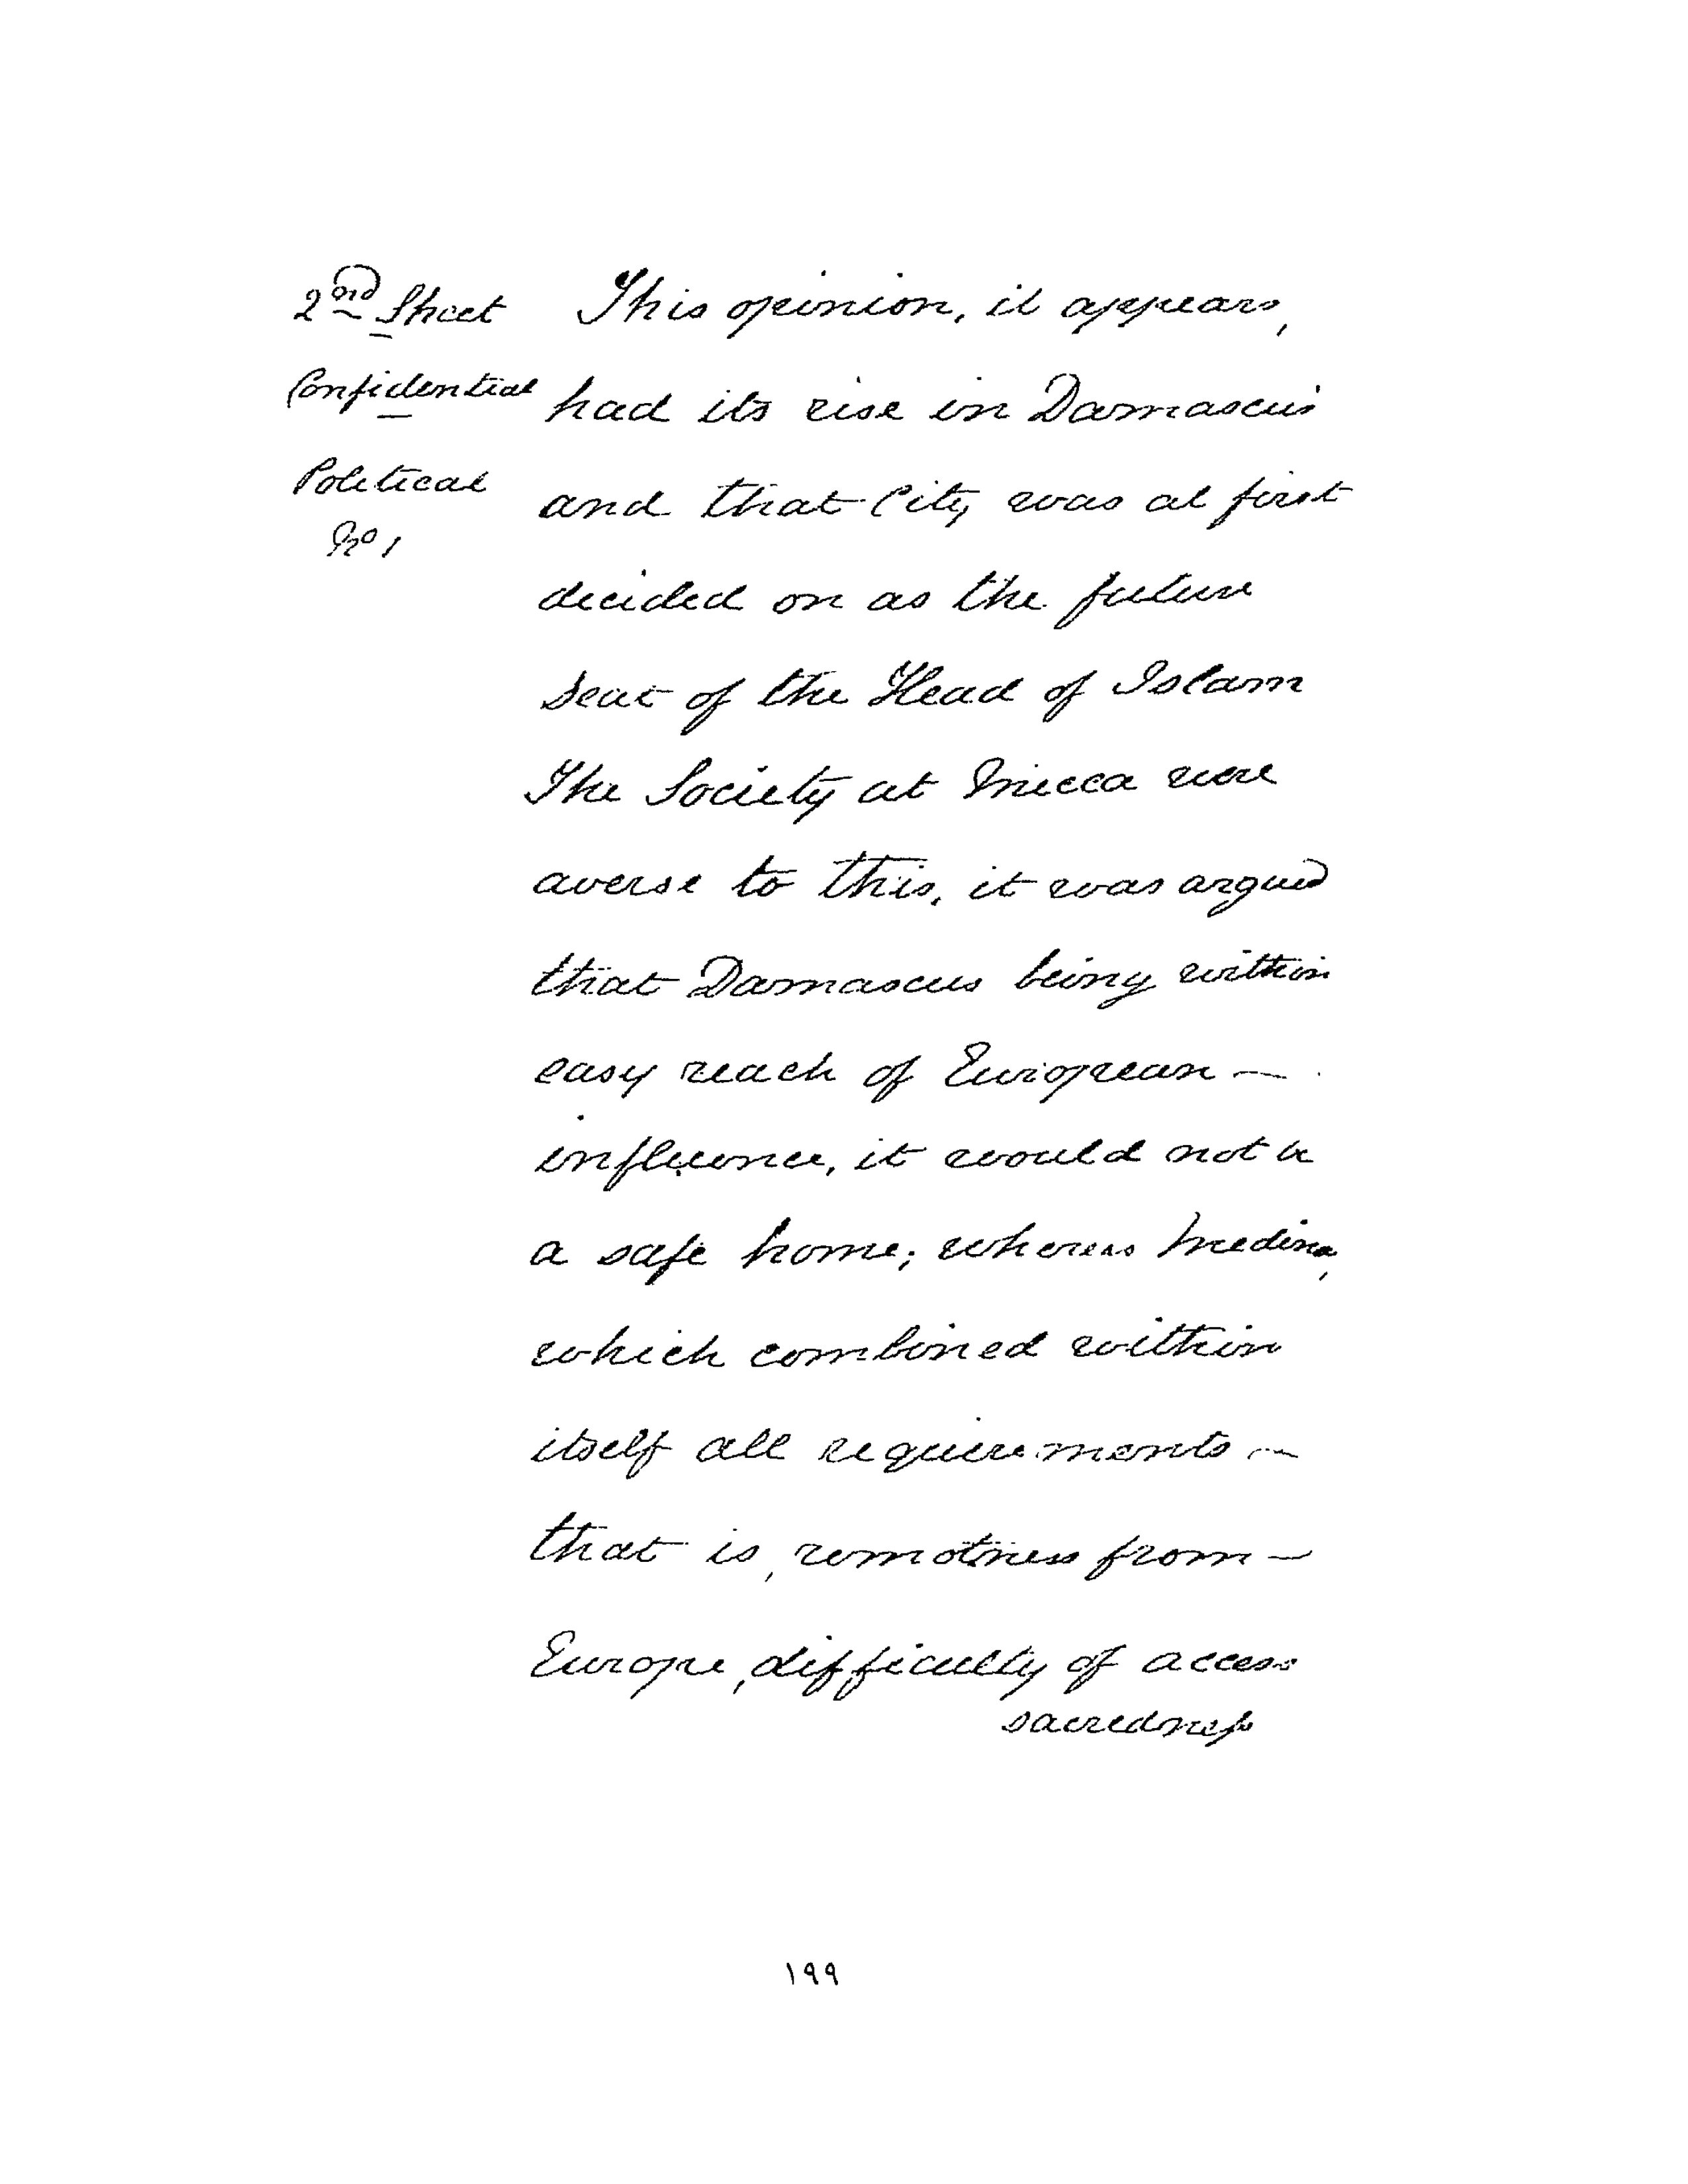 2nd Sheet
Confidential
Political
No 1
This opinion, it appears,
had its rise in Damascus
and that City was at first
decided on as the future
seat of the Head of Islam
The Society at Mecca were
averse to this, it was argued
that Damascus being within
easy reach of European —
influence, it would not be
a safe home; whereas Medina,
which combined within
itself all requirements —
that is, remotness from —
Europe, difficulty of access
sacredness
١٩٩